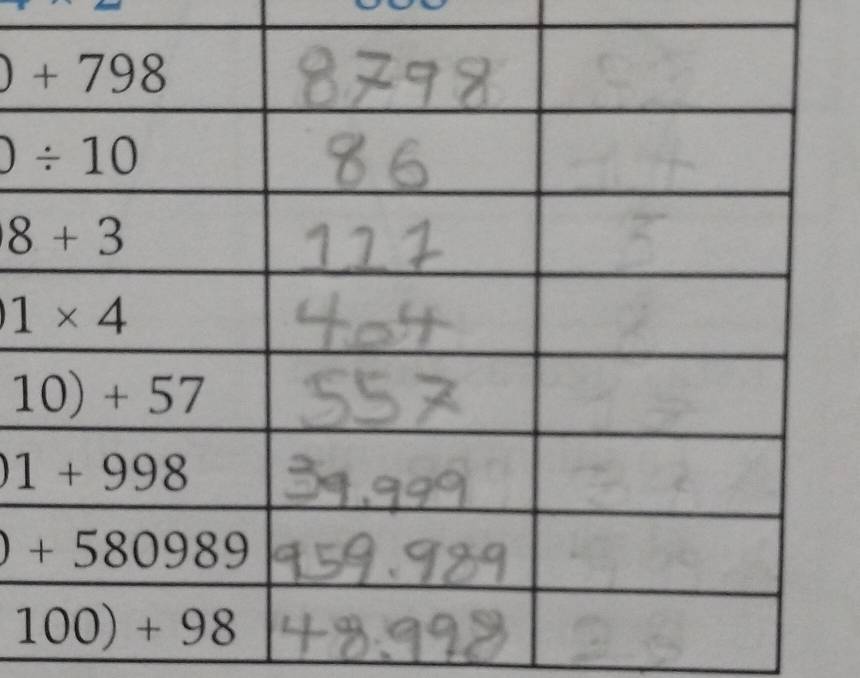 0 + 798 8798
0 ÷ 10 86
8 + 3 111
01 × 4 404
10) + 57 557
01 + 998 39.999
0 + 580989 959.989
100) + 98 48.998